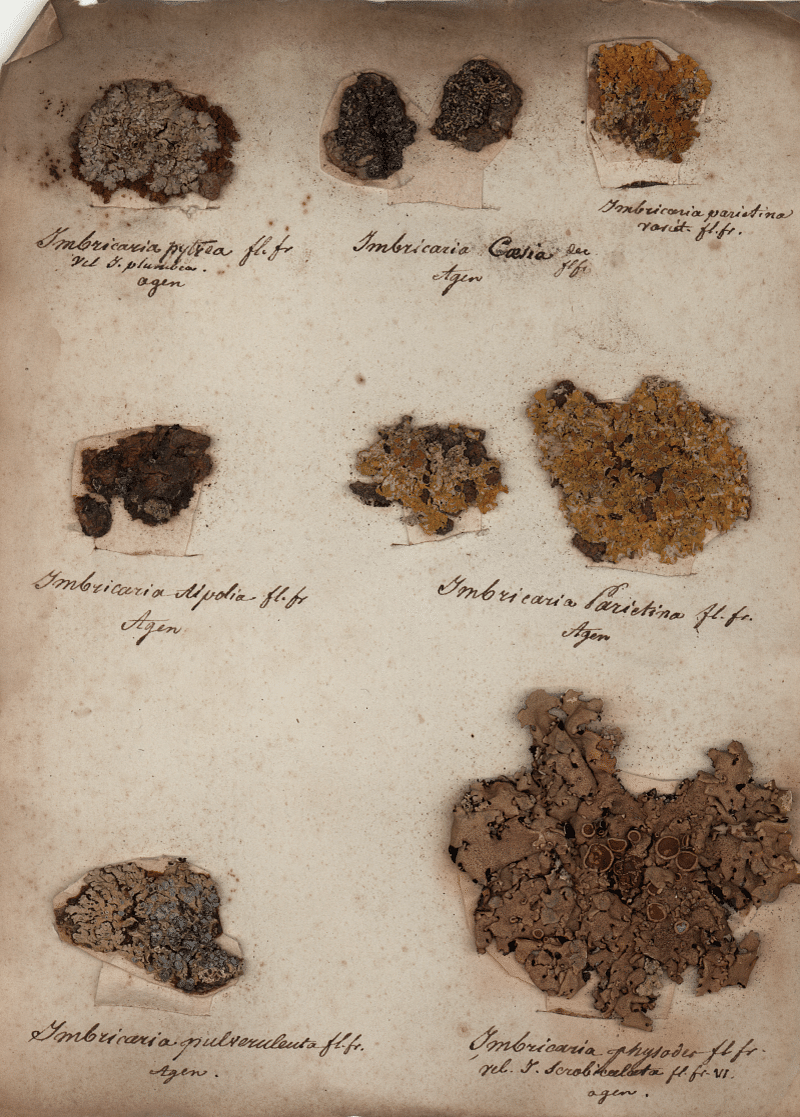 Imbricaria pytrea fl. fr
vel I. plumbea.
agen
Imbricaria Cæsia dec
fl fr
Agen
Imbricaria parietina
variet. fl. fr.
Imbricaria Aipolia fl. fr
Agen
Imbricaria Parietina fl. fr.
Agen
Imbricaria pulverulenta fl. fr.
Agen.
Imbricaria physodes fl fr.
vel. I. Scrobiculata fl fr VI.
agen.